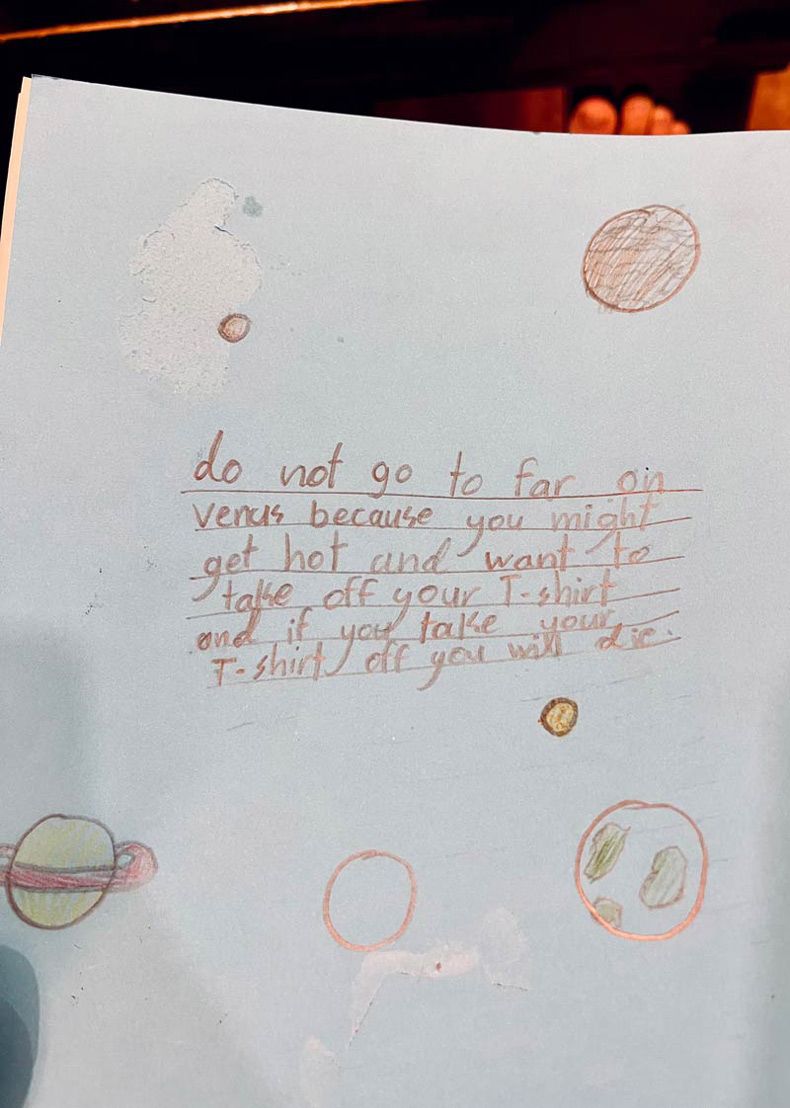 do not go to far on
venus because you might
get hot and want to
take off your T-shirt
and if you take your
T-shirt off you will die.